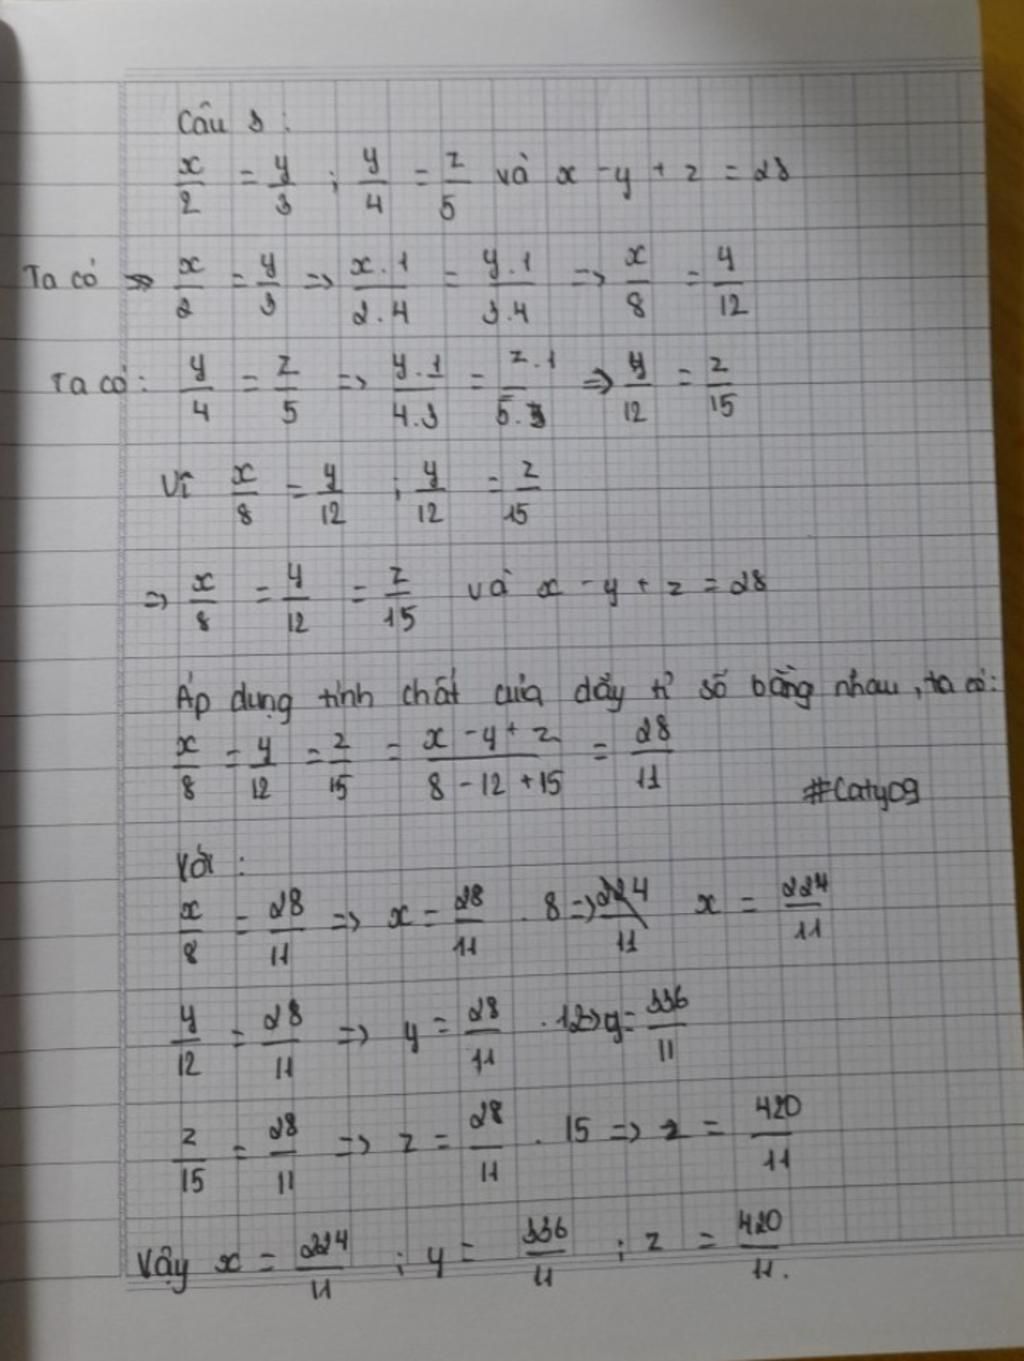 Câu 3:
x/2 = y/3 ; y/4 = z/5 và x - y + z = 28
Ta có => x/2 = y/3 => x.1/2.4 = y.1/3.4 => x/8 = y/12
Ta có: y/4 = z/5 => y.1/4.3 = z.1/5.3 => y/12 = z/15
Vì x/8 = y/12 ; y/12 = z/15
=> x/8 = y/12 = z/15 và x - y + z = 28
Áp dụng tính chất của dãy tỉ số bằng nhau, ta có:
x/8 = y/12 = z/15 = x - y + z/8 - 12 + 15 = 28/11
#Caty09
Với:
x/8 = 28/11 => x = 28/11 . 8 => 224/11 x = 224/11
y/12 = 28/11 => y = 28/11 . 12 => y = 336/11
z/15 = 28/11 => z = 28/11 . 15 => z = 420/11
Vậy x = 224/11 ; y = 336/11 ; z = 420/11.